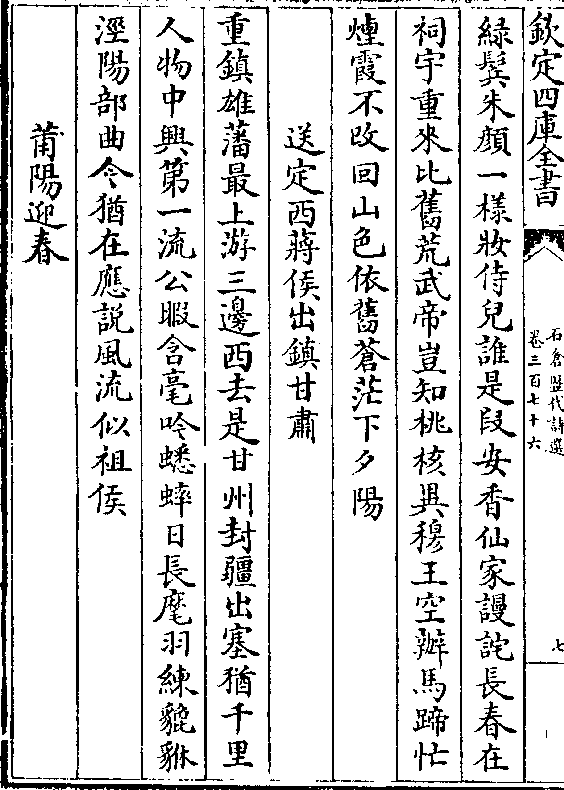 欽定四庫全書
石倉歷代詩選
卷三百七十六
七
綠鬓朱顔一様妝侍兒誰是段安香仙家謾詫長春在
祠宇重來比舊荒武帝豈知桃核異穆王空辦馬蹄忙
煙霞不改回山色依舊蒼茫下夕陽
送定西蔣侯出鎮甘肅
重鎮雄藩最上游三邊西去是甘州封疆出塞猶千里
人物中興第一流公暇含毫吟蟋蟀日長麾羽練貔貅
涇陽部曲今猶在應説風流似祖侯
莆陽迎春